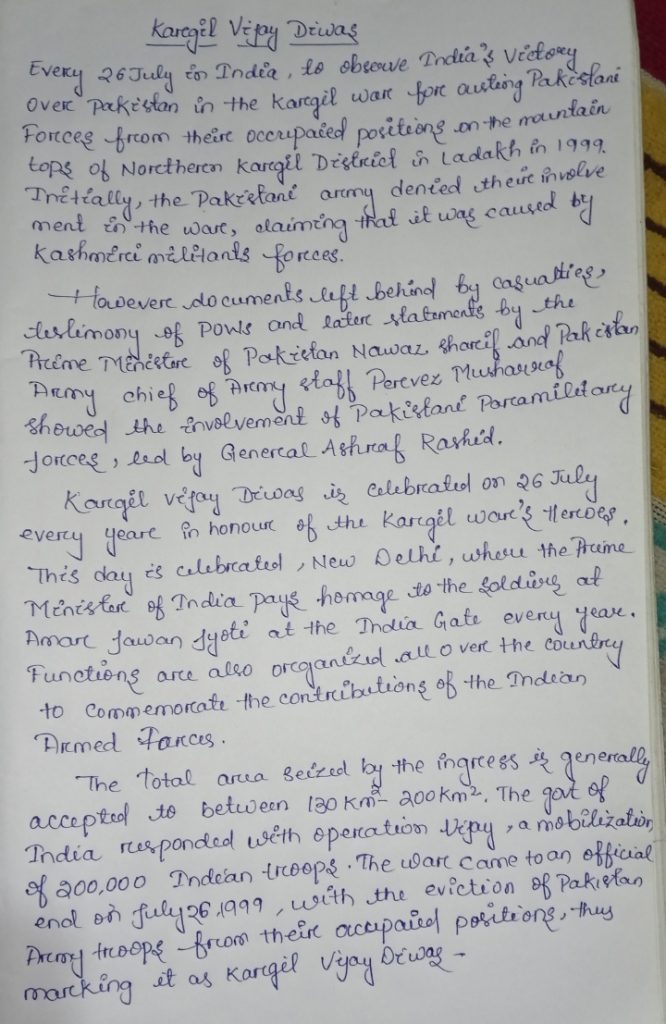 Kargil Vijay Diwas
Every 26 July in India, to observe India's Victory
over Pakistan in the Kargil war for austing Pakistani
Forces from their occupaied positions on the mountain
tops of Northern Kargil District in Ladakh in 1999.
Initially, the Pakistani army denied their involve
ment in the war, claiming that it was caused by
Kashmiri militants forces.
However documents left behind by casualties,
testimony of POWs and later statements by the
Prime Minister of Pakistan Nawaz sharif and Pakistan
Army chief of Army staff Pervez Musharraf
showed the involvement of Pakistani Paramilitary
forces, led by General Ashraf Rashid.
Kargil vijay Diwas is celebrated on 26 July
every year in honour of the Kargil war's Heroes.
This day is celebrated, New Delhi, where the Prime
Minister of India pays homage to the soldiers at
Amar Jawan Jyoti at the India Gate every year.
Functions are also organized all over the country
to commemorate the contributions of the Indian
Armed Forces.
The Total area seized by the ingress is generally
accepted to between 130 Km²- 200 Km². The govt of
India responded with operation Vijay, a mobilization
of 200,000 Indian troops. The war came to an official
end on July 26, 1999, with the eviction of Pakistan
Army troops from their occupaied positions, thus
marking it as Kargil Vijay Diwas -